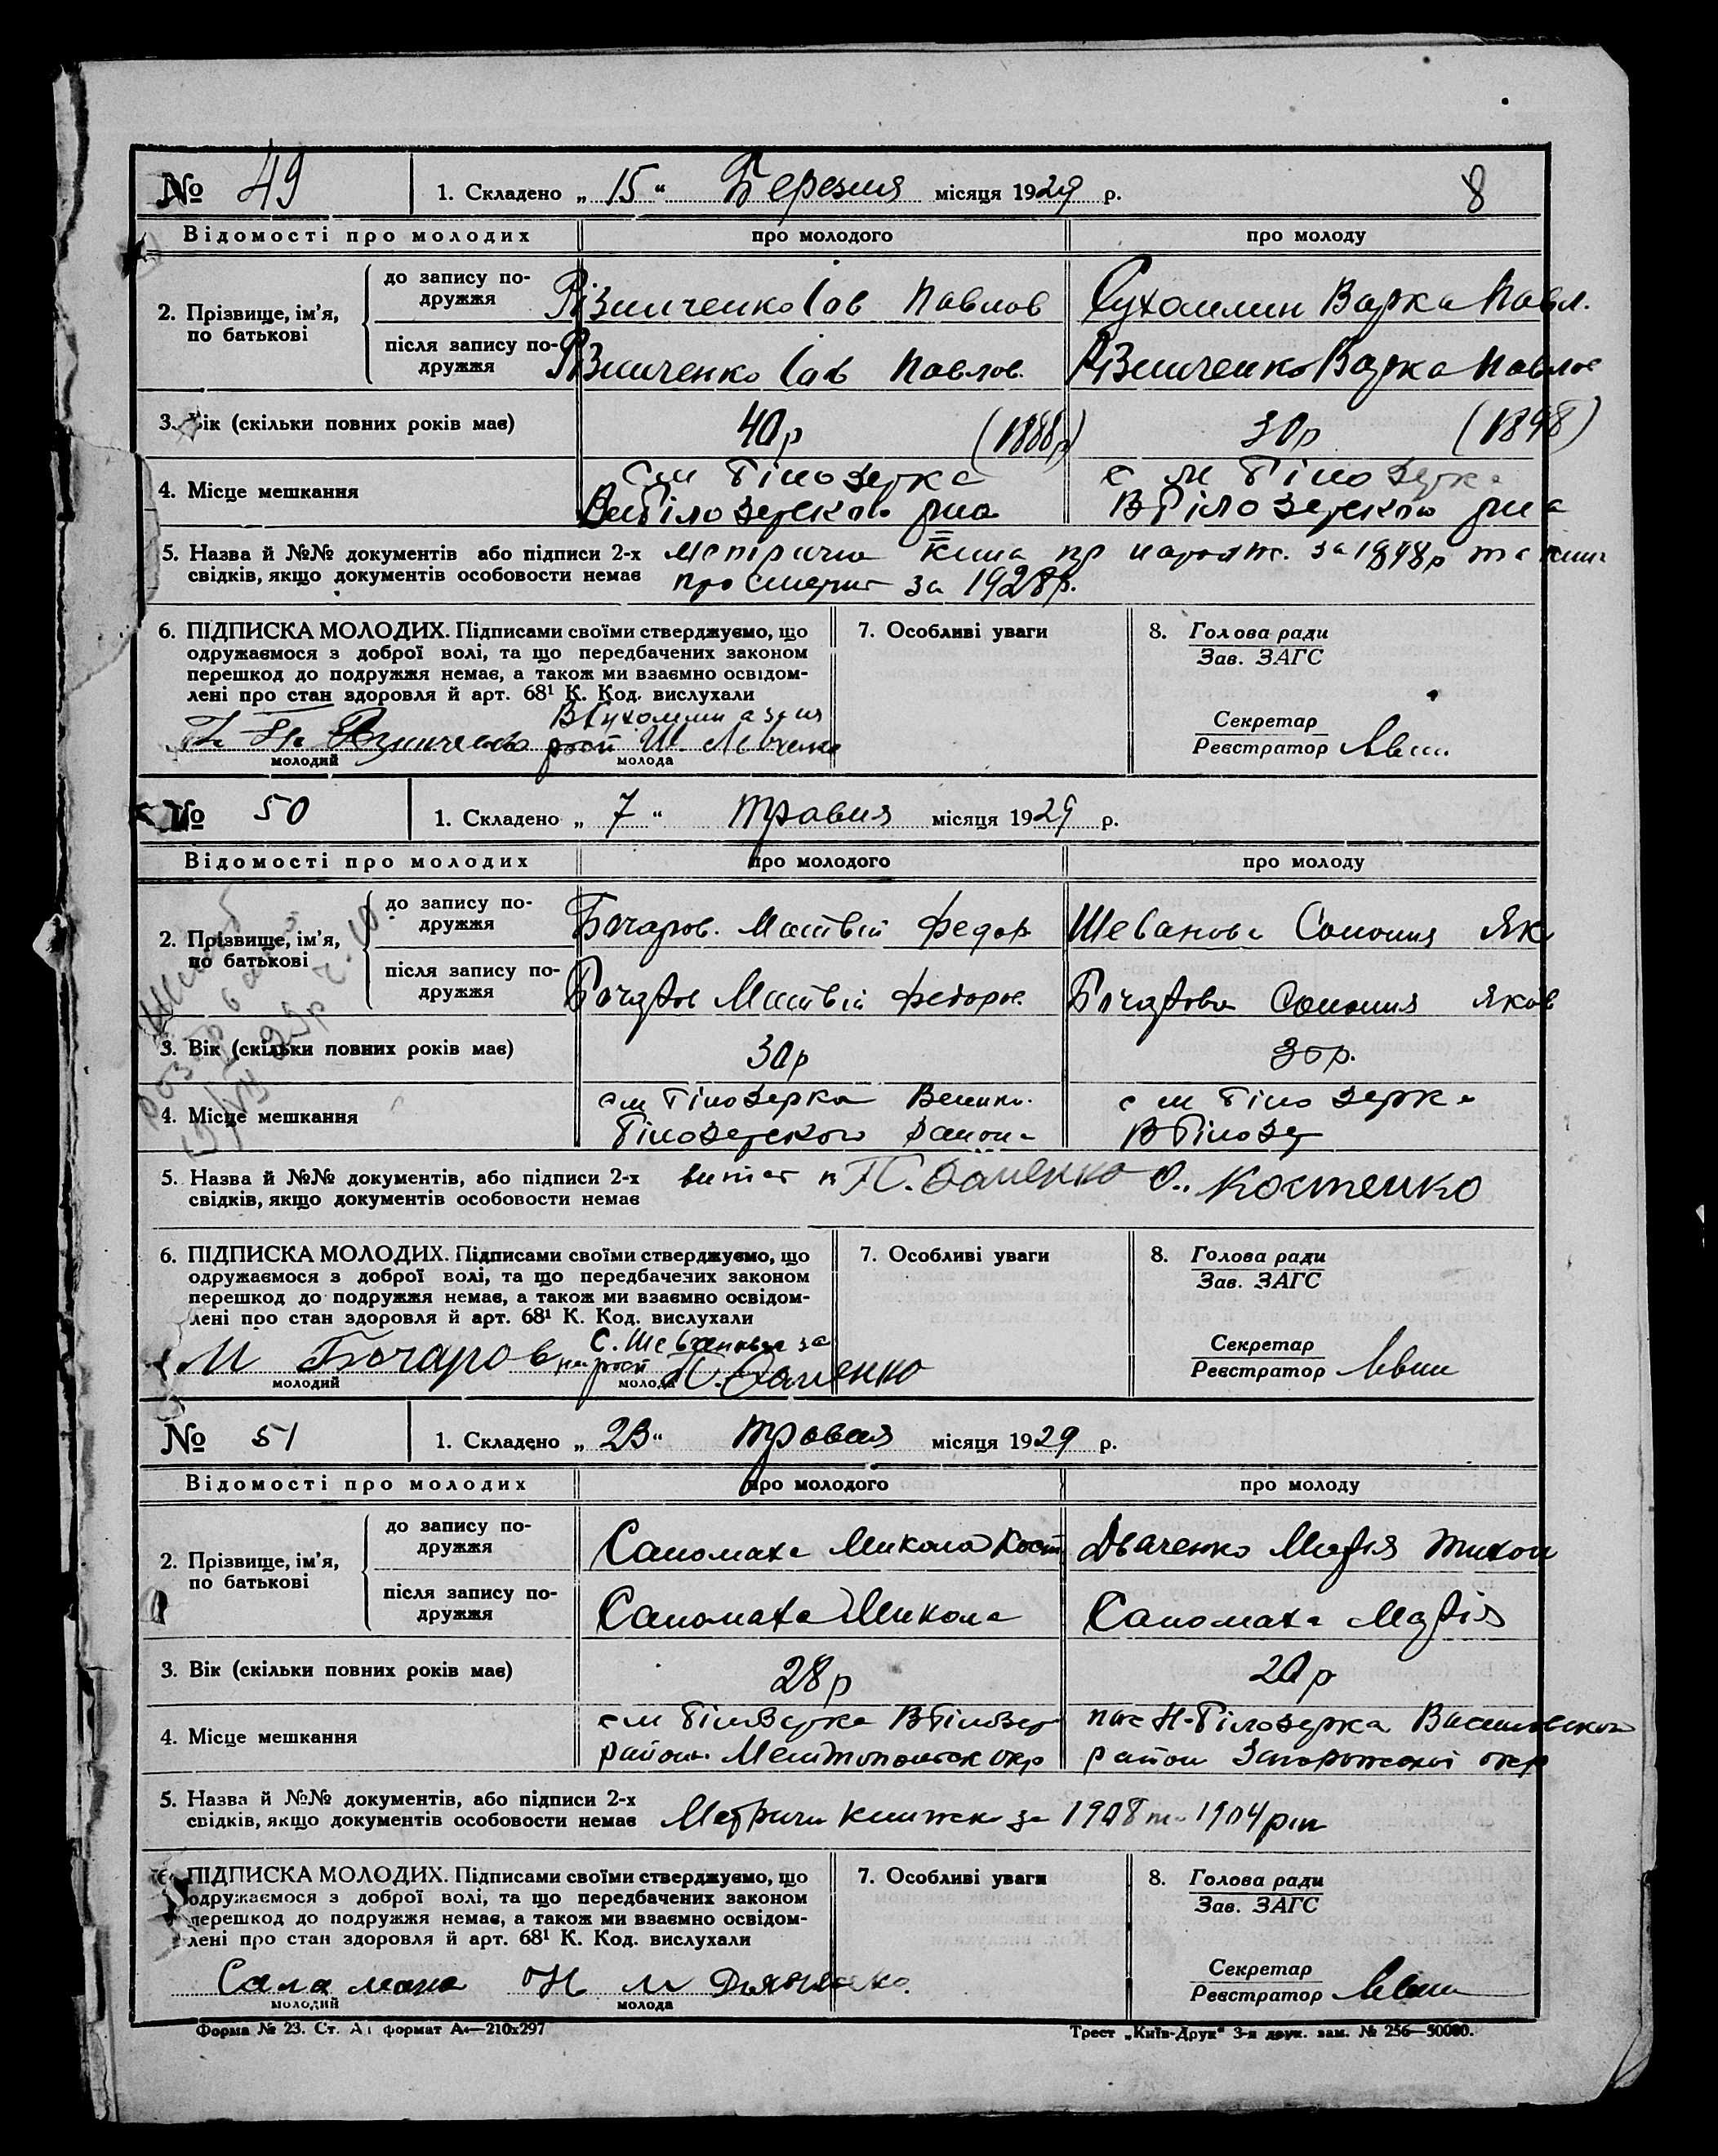 № 49 1. Складено „ 15 “ Березня місяця 1929 р. 8
Відомості про молодих про молодого про молоду
2. Прізвище, ім'я, по батькові
до запису подружжя Різниченко Іов Павлов Сухомлин Варка Павл.
після запису подружжя Різниченко Іов Павлов. Різниченко Варка Павлов
3. Вік (скільки повних років має) 40р (1888р) 30р (1898)
4. Місце мешкання см Білозерка с м Білозерка
ВелБілозерського рна ВБілозерського рна
5. Назва й №№ документів або підписи 2-х Метрична книга пр народж. за 1898р та книг
свідків, якщо документів особовости немає про смерть за 1928р.
6. ПІДПИСКА МОЛОДИХ. Підписами своїми стверджуємо, що 7. Особливі уваги 8. Голова ради
одружаємося з доброї волі, та що передбачених законом Зав. ЗАГС
перешкод до подружжя немає, а також ми взаємно освідом-
лені про стан здоровля й арт. 68¹ К. Код. вислухали
В Сухомлин а за
Секретар
Різниченко Реєстратор
молодий молода
№ 50 1. Складено „ 7 “ травня місяця 1929 р.
Відомості про молодих про молодого про молоду
2. Прізвище, ім'я, по батькові
до запису подружжя Бочаров. Матвій Федор Шеванова Соломия Як
після запису подружжя Бочаров Матвій Федоров. Бочарова Соломия Яков
3. Вік (скільки повних років має) 30р 30р.
4. Місце мешкання см Білозерка Велико- с м Білозерка
Білозерского района ВБілозер
5. Назва й №№ документів, або підписи 2-х витяг О. Костенко
свідків, якщо документів особовости немає
6. ПІДПИСКА МОЛОДИХ. Підписами своїми стверджуємо, що 7. Особливі уваги 8. Голова ради
одружаємося з доброї волі, та що передбачених законом Зав. ЗАГС
перешкод до подружжя немає, а також ми взаємно освідом-
лені про стан здоровля й арт. 68¹ К. Код. вислухали
С. Шеванова за Секретар
М Бочаров Реєстратор
молодий молода
№ 51 1. Складено „ 23 “ травня місяця 1929 р.
Відомості про молодих про молодого про молоду
2. Прізвище, ім'я, по батькові
до запису подружжя Саломаха Микола Кост Дьяченко Марія Тихон
після запису подружжя Саломаха Микола Саломаха Марія
3. Вік (скільки повних років має) 28р 20р
4. Місце мешкання см Білозерка ВБілозер Н-Білозерка Василівского
району Мелитопольск окр район Запорожской окр
5. Назва й №№ документів, або підписи 2-х
свідків, якщо документів особовости немає Метричн книжки за 1908 та 1904 рік
6. ПІДПИСКА МОЛОДИХ. Підписами своїми стверджуємо, що 7. Особливі уваги 8. Голова ради
одружаємося з доброї волі, та що передбачених законом Зав. ЗАГС
перешкод до подружжя немає, а також ми взаємно освідом-
лені про стан здоровля й арт. 68¹ К. Код. вислухали
Секретар
Саламаха Н М Дьяченко. Реєстратор
молодий молода
Форма № 23. Ст. А₁ формат А₄—210х297 Трест „Київ-Друк“ 3-я друк. зам. № 256—50000.